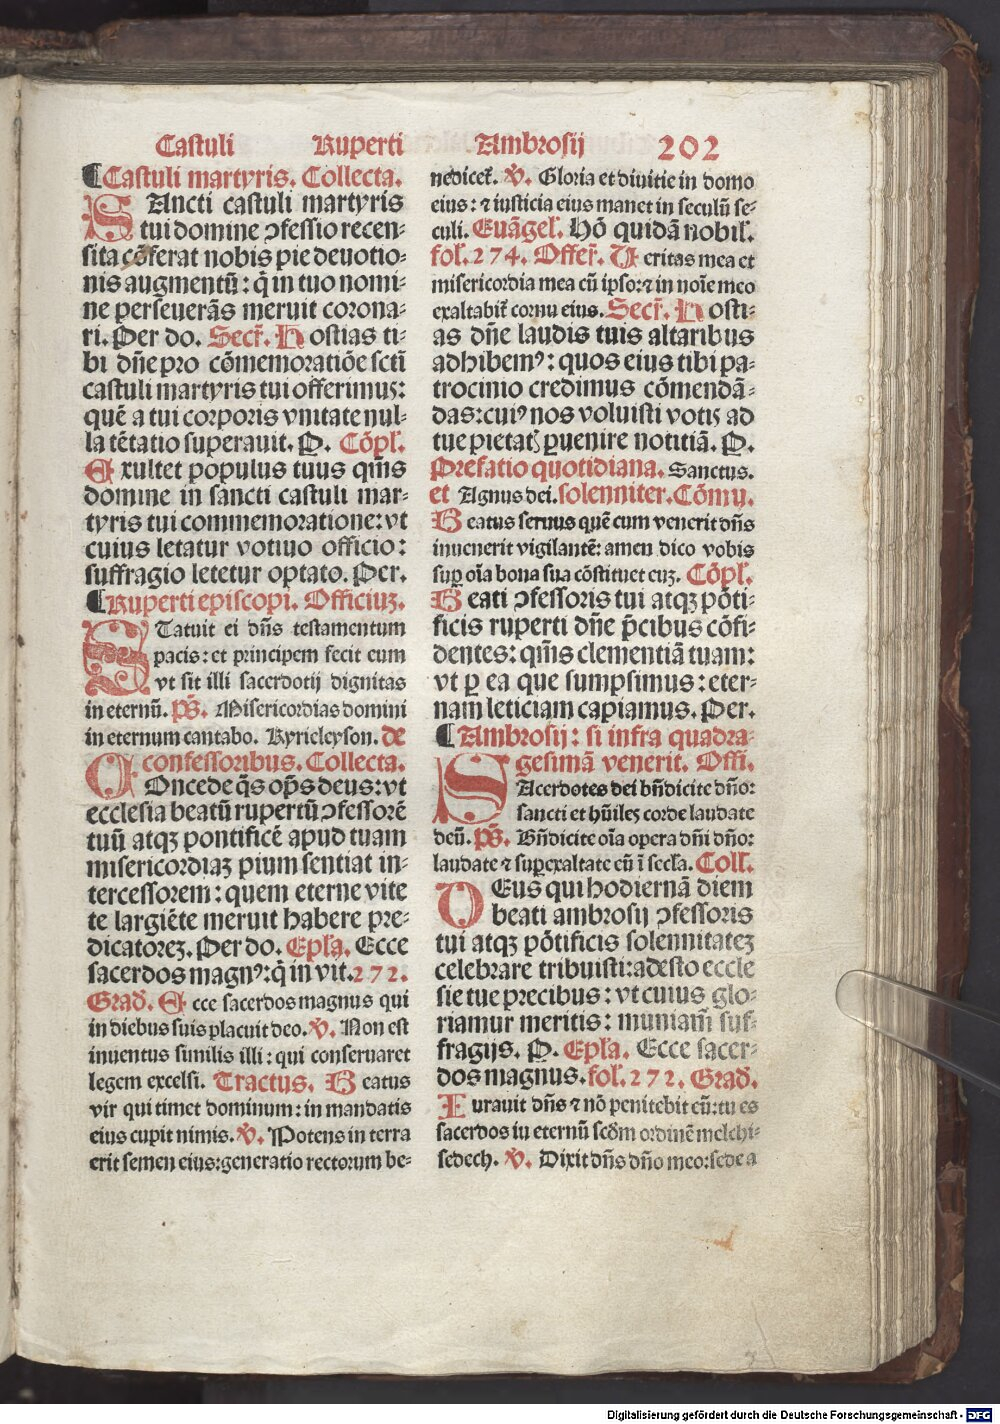 Castuli Ruperti Ambrosij 202
¶Castuli martyris. Collecta.
SAncti castuli martyris
tui domine ↄfessio recen⸗
sita cōferat nobis pie deuotio⸗
nis augmentū: q̄ in tuo nomi⸗
ne perseuerās meruit corona⸗
ri. Per do. Secr̄. Hostias ti⸗
bi dn̄e pro cōmemoratiōe sctī
castuli martyris tui offerimus:
quē a tui corporis vnitate nul⸗
la tētatio superauit. P. Cōpl̄.
Exultet populus tuus qm̄s
domine in sancti castuli mar⸗
tyris tui commemoratione: vt
cuius letatur votiuo officio:
suffragio letetur optato. Per.
¶Ruperti episcopi. Officiuꝫ.
STatuit ei dn̄s testamentum
pacis: et principem fecit eum
vt sit illi sacerdotij dignitas
in eternū. ps̄. Misericordias domini
in eternum cantabo. Kyrieleyson. de
confessoribus. Collecta.
COncede q̄s op̄s deus: vt
ecclesia beatū rupertū ↄfessorē
tuū atqꝫ pontificē apud tuam
misericordiaꝫ pium sentiat in⸗
tercessorem: quem eterne vite
te largiēte meruit habere pre⸗
dicatoreꝫ. Per do. Epl̄a. Ecce
sacerdos magnꝰ: q̄ in vit. 272.
Grad̄. Ecce sacerdos magnus qui
in diebus suis placuit deo. v̄. Non est
inuentus similis illi: qui conseruaret
legem excelsi. Tractus. Beatus
vir qui timet dominum: in mandatis
eius cupit nimis. v̄. Potens in terra
erit semen eius: generatio rectorum be⸗
nedicet̄. v̄. Gloria et diuitie in domo
eius: ⁊ iusticia eius manet in seculū se⸗
culi. Euāgel̄. Hō quidā nobil̄.
fol. 274. Offer̄. Veritas mea et
misericordia mea cū ipso: ⁊ in noīe meo
exaltabit̄ cornu eius. Secr̄. Hosti⸗
as dn̄e laudis tuis altaribus
adhibemꝰ: quos eius tibi pa⸗
trocinio credimus cōmendā⸗
das: cuiꝰ nos voluisti votis ad
tue pietatꝭ ꝑuenire notitiā. P.
Prefatio quotidiana. Sanctus.
et Agnus dei. solenniter. Cōmu.
Beatus seruus quē cum venerit dn̄s
inuenerit vigilantē: amen dico vobis
suꝑ oīa bona sua cōstituet euꝫ. Cōpl̄.
Beati ↄfessoris tui atqꝫ pōti⸗
ficis ruperti dn̄e p̄cibus cōfi⸗
dentes: qm̄s clementiā tuam:
vt ꝑ ea que sumpsimus: eter⸗
nam leticiam capiamus. Per.
¶Ambrosij: si infra quadra⸗
gesimā venerit. Offi.
SAcerdotes dei bn̄dicite dn̄o:
sancti et hūiles corde laudate
deū. ps̄. Bn̄dicite oīa opera dn̄i dn̄o:
laudate ⁊ suꝑexaltate eū ī secl̄a. Coll̄.
DEus qui hodiernā diem
beati ambrosij ↄfessoris
tui atqꝫ pōtificis solennitateꝫ
celebrare tribuisti: adesto eccle
sie tue precibus: vt cuius glo⸗
riamur meritis: muniam̄ suf⸗
fragijs. P. Epl̄a. Ecce sacer⸗
dos magnus. fol. 272. Grad̄.
Iurauit dn̄s ⁊ nō penitebit eū: tu es
sacerdos in eternū scd̄m ordinē melchi⸗
sedech. v̄. Dixit dn̄s dn̄o meo: sede a
Digitalisierung gefördert durch die Deutsche Forschungsgemeinschaft - DFG